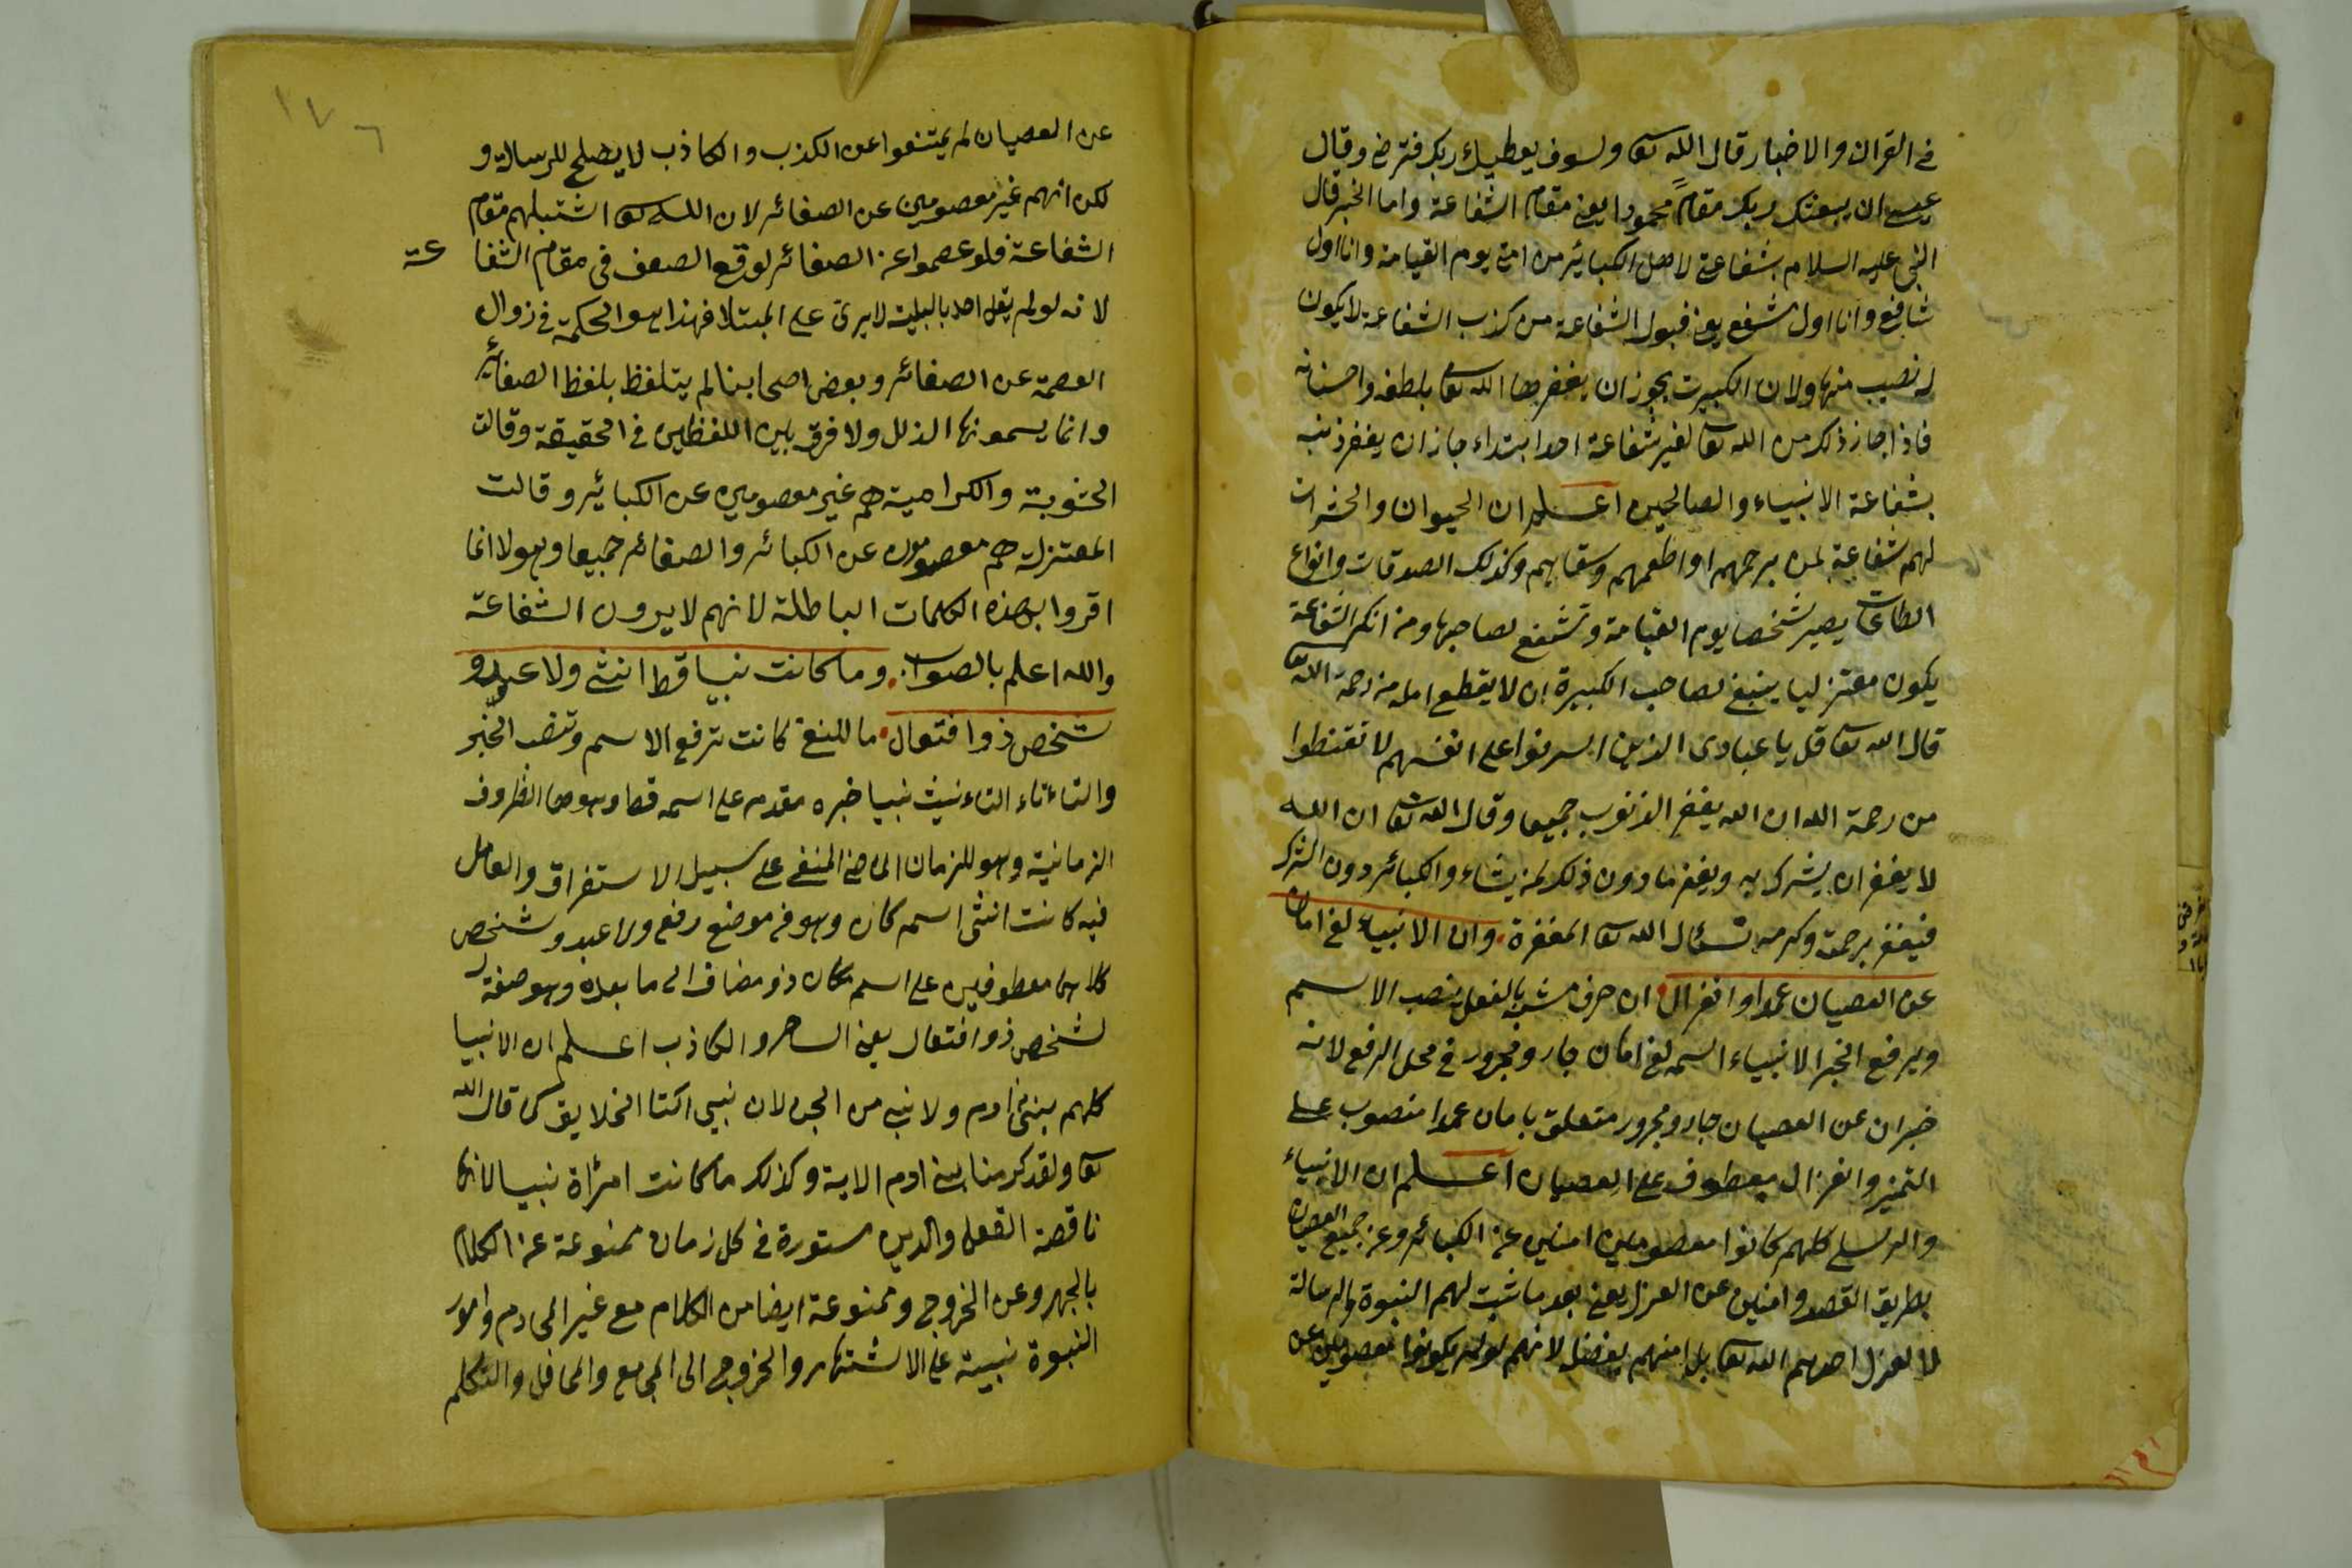 في القران والاخبار قال الله تعا ولسوف يعطيك ربك فترضى وقال
عسى ان يبعثك ربك مقاماً محمودا يعني مقام الشفاعة واما الخبر قال
النبي عليه السلام شفاعتي لاهل الكبائر من امتي يوم القيامة وانا اول
شافع وانا اول مشفع يعني قبول الشفاعة من كذب الشفاعة لا يكون
له نصيب منها ولان الكبيرت يجوز ان يغفرها الله تعا بلطفه واحسانه
فاذا جاز ذلك من الله تعا لغير شفاعة احد ابتداء جاز ان يغفر ذنبه
بشفاعة الانبياء والصالحين اعلم ان الحيوان والحشرات
لهم شفاعة لمن يرحمهم او اطعمهم وسقاهم وكذلك الصدقات وانواع
الطاعات يصير شخصا يوم القيامة وتشفع لصاحبها ومن انكر الشفاعة
يكون معتزليا ينبغي لصاحب الكبيرة ان لا يقطع امله من رحمة الله تعا
قال الله تعا قل يا عبادى الذين اسرفوا على انفسهم لا تقنطوا
من رحمة الله ان الله يغفر الذنوب جميعا وقال الله تعا ان الله
لا يغفر ان يشرك به ويغفر ما دون ذلك لمن يشاء والكبائر دون الشرك
فيغفر برحمته وكرمه نسئال الله تعا المغفرة وان الانبياء لفي امان
عن العصيان عمدا وانعزال ان حرف مشبه بالفعل ينصب الاسم
ويرفع الخبر الانبياء اسمه لفي امان جار ومجرور في محل الرفع لانه
خبر ان عن العصيان جار ومجرور متعلق بامان عمدا منصوب على
التميز وانعزال معطوف على العصيان اعلم ان الانبياء
والرسل كلهم كانوا معصومين امنين عن الكبائر وعن جميع العصيان
بطريق القصد وامنين عن العزل يعني بعد ما ثبت لهم النبوة والرسالة
لا لعزل احدهم الله تعا بل امنهم بفضله لانهم لو لم يكونوا معصومين عن
عن العصيان لم يمتنعوا عن الكذب والكاذب لا يصلح للرسالة و
لكن انهم غير معصومين عن الصغائر لان الله تعا اثبت لهم مقام
الشفاعة فلو عصموا عن الصغائر لوقع الضعف في مقام الشفا عة
لانه لو لم يقل احد بالبلية لا يرى على المبتلا فهذا هو الحكمة في زوال
العصمة عن الصغائر وبعض اصحابنا لم يتلفظ بلفظ الصغائر
وانما يسمونها الذلل ولا فرق بين اللفظين في الحقيقة وقالت
الحشوية والكرامية هم غير معصومين عن الكبائر وقالت
المعتزلة هم معصومون عن الكبائر والصغائر جميعا وهولا انما
اقروا بهذه الكلمات الباطلة لانهم لا يرون الشفاعة
والله اعلم بالصواب وما كانت نبيا قط انثى ولا عبد و
شخص ذو افتعال ما للنفي كانت ترفع الاسم وتنصب الخبر
والتاء تاء التاءنيث نبيا خبره مقدم على اسمه قط وهو من الظروف
الزمانية وهو للزمان الماضى المنفى على سبيل الاستغراق والعامل
فيه كانت انثى اسم كان وهو في موضع رفع ولا عبد وشخص
كلاهما معطوفين على اسم كان ذو مضاف الى ما بعده وهو صفة
لشخص ذو افتعال يعني الساحر والكاذب اعلم ان الانبيا
كلهم من بنى ادم ولا نبي من الجن لان نبي اكتا الخلايق كما قال الله
تعا ولقد كرمنا بني ادم الاية وكذلك ما كانت امرأة نبيا لانها
ناقصة العقل والدين مستورة في كل زمان ممنوعة عن الكلام
بالجهر وعن الخروج وممنوعة ايضا من الكلام مع غير المحارم وامور
النبوة نبيت على الاشتهار والخروج الى المجامع والمحافل والتكلم
١٧٦